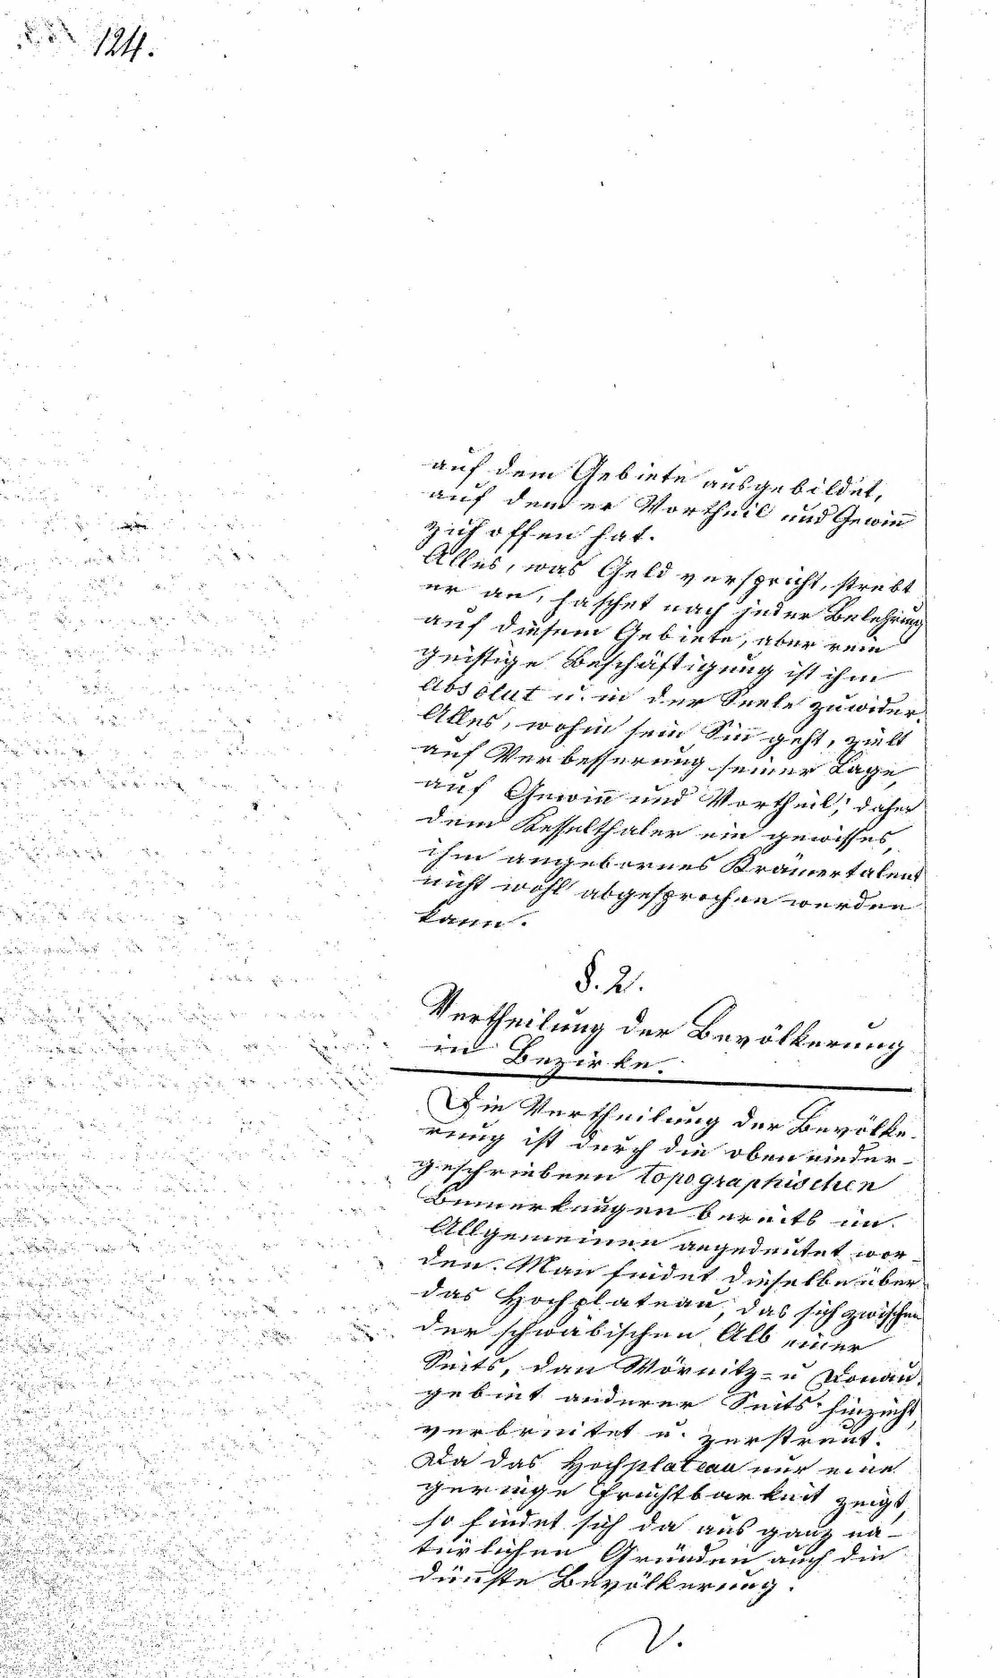 124.
auf dem Gebiete ausgebildet,
auf dem er Vortheil und Gewiñ
zu hoffen hat.
Alles, was Geld verspricht, strebt
er an, haschet nach jeder Belehrung
auf diesem Gebiete, aber rein
geistige Beschäftigung ist ihm
absolut u. in der Seele zuwider.
Alles, wohin sein Siñ geht, zielt
auf Verbesserung seiner Lage,
auf Gewiñ und Vortheil; daher
dem Kesselthaler ein gewisses,
ihm angebornes Krämertalent
nicht wohl abgesprochen werden
kann.
§. 2.
Vertheilung der Bevölkerung
im Bezirke.
Die Vertheilung der Bevölke-
rung ist durch die oben nieder-
geschriebnen topographischen
Bemerkungen bereits im
Allgemeinen angedeutet wor-
den. Man findet dieselbe über
das Hochplateau, das sich zwischen
der schwäbischen Alb einer
Seits, dan Wörnitz- u Donau-
gebiet anderer Seits hinzieht,
verbreitet u. zerstreut.
Da das Hochplateau nur eine
geringe Fruchtbarkeit zeigt,
so findet sich da aus ganz na-
türlichen Gründen auch die
düñste Bevölkerung.
V.